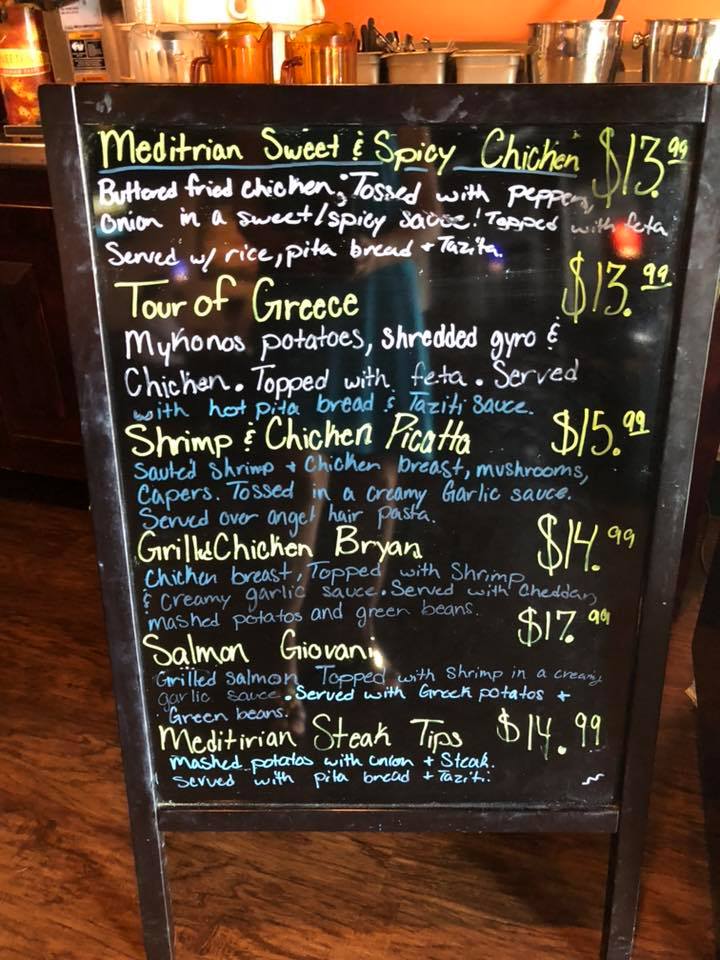 Meditrian Sweet & Spicy Chicken $13.99
Buttered fried chicken. Tossed with peppers,
Onion in a sweet/spicy sauce! Topped with feta
Served w/ rice, pita bread + Tazita.
Tour of Greece $13.99
Mykonos potatoes, shredded gyro &
Chicken. Topped with feta. Served
with hot pita bread & Taziti Sauce.
Shrimp & Chicken Picatta $15.99
Sauted Shrimp + Chicken breast, mushrooms,
Capers. Tossed in a creamy Garlic sauce.
Served over angel hair pasta.
Grilled Chicken Bryan $14.99
Chicken breast, Topped with Shrimp
& Creamy garlic sauce. Served with Cheddar
mashed potatos and green beans.
Salmon Giovani $17.99
Grilled Salmon Topped with Shrimp in a creamy
garlic sauce. Served with Greek potatos +
Green beans.
Meditirian Steak Tips $14.99
Mashed potatos with onion + Steak.
Served with pita bread + Taziti.